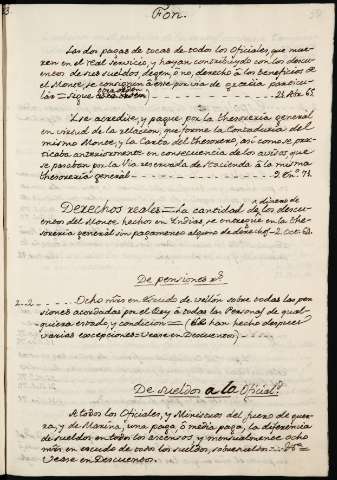 Fon.
Las dos pagas de tocas de todos los Oficiales, que mue-
ren en el real servicio, y hayan contribuydo con los descu-
entos de sus sueldos degen, ò no, derecho à los beneficios de
el Monte, se consignan à este por via de gracia particu-
lar = Sigue otra orden) 21 Abr. 65.
Y se acredite, y pague por la thesoreria general
en virtud de la relacion, que forme la Contaduria del
mismo Monte, y la Carta del thesorero, asi como se prac-
ticaba anteriormente en consecuencia de los avisos que
se pasaban por la Via reservada de Hacienda à la misma
thesoreria general 9. En.º 71.
Derechos reales = La cantidad de dinero de los descu-
entos del Monte hechos en Indias se entregue en la the-
soreria general sin pagamento alguno de derechos - 2. Oct. 62.
De pensiones
2..2 Ocho mrs en Escudo de vellon sobre todas las pen-
siones acordadas por el Rey à todas las Personas de qual-
quiera estado, y condicion = (se han hecho despues
varias excepciones = Vease en Descuentos)
De sueldos a la Oficial.d
A todos los Oficiales, y Ministros del fuero de guer-
ra, y de Marina, una paga, ò media paga, la diferencia
de sueldos en todos los ascensos, y mensualmente ocho
mrs en escudo de todos los sueldos, sobresueldos
Vease en Descuentos.